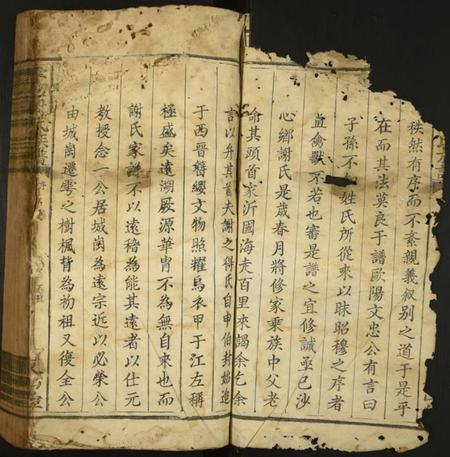 秩然有序而不紊親義叙別之道于是乎
在而其法莫良于譜歐陽文忠公有言曰
子孫不 姓氏所從來以昧昭穆之序者
禽獸不若也審是譜之宜修誠亟已沙
心鄉謝氏是歲春月將修家乘族中父老
命其頭首家沂國海走百里來謁余乞余
言以弁其首夫謝之得氏自申伯封始迨
于西晉簪纓文物照耀烏衣甲于江左稱
極盛矣遠溯厥源華冑不為無自來也而
謝氏家譜不以遠稽為能其遠者以仕元
教授念一公居城崗為遠宗近以必榮公
由城崗遷雩之樹楓背為初祖又後全公